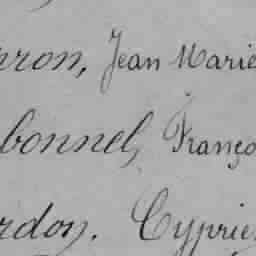 rron, Jean Marie
bonnel, Franço
rdon. Cyprie